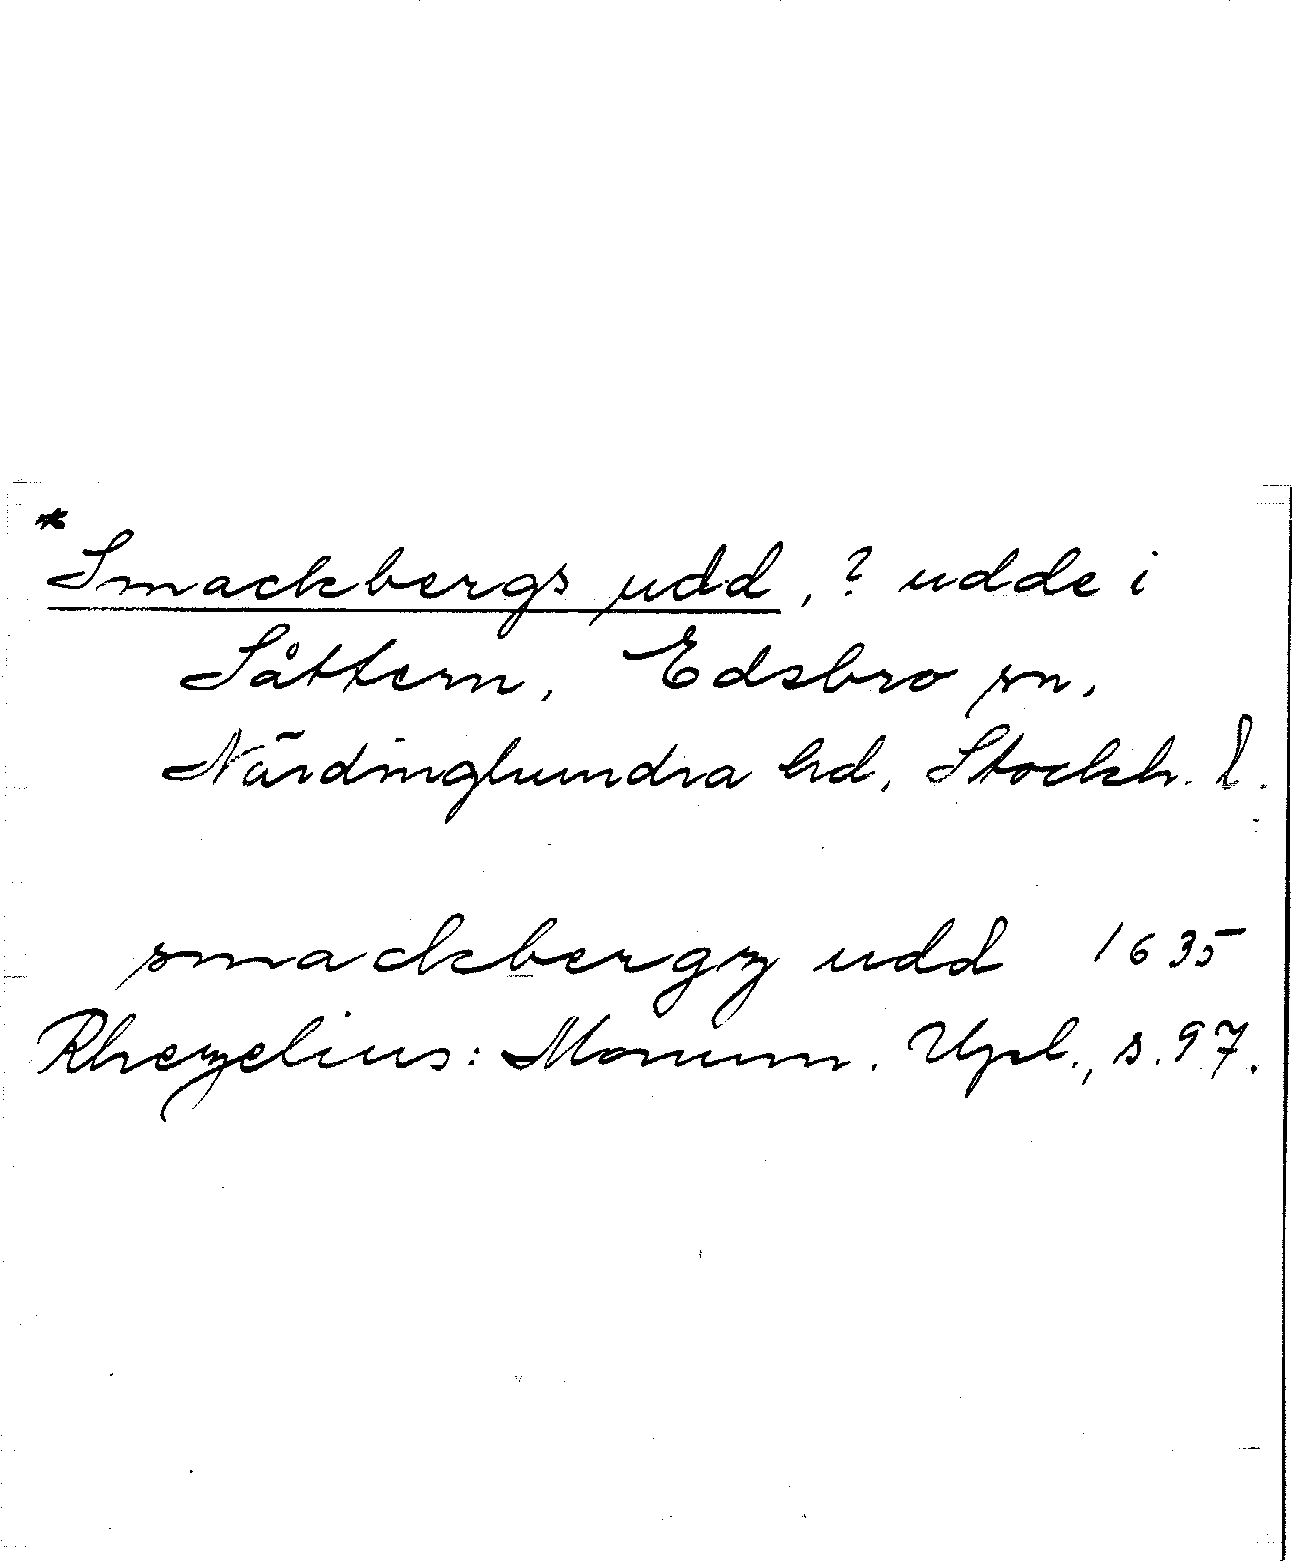 *
Smackbergs udd, ? udde i
Såttern, Edsbro sn,
Närdinghundra hd, Stockh. l.
smackbergz udd 1635
Rhezelius: Monum. Upl., s. 97.